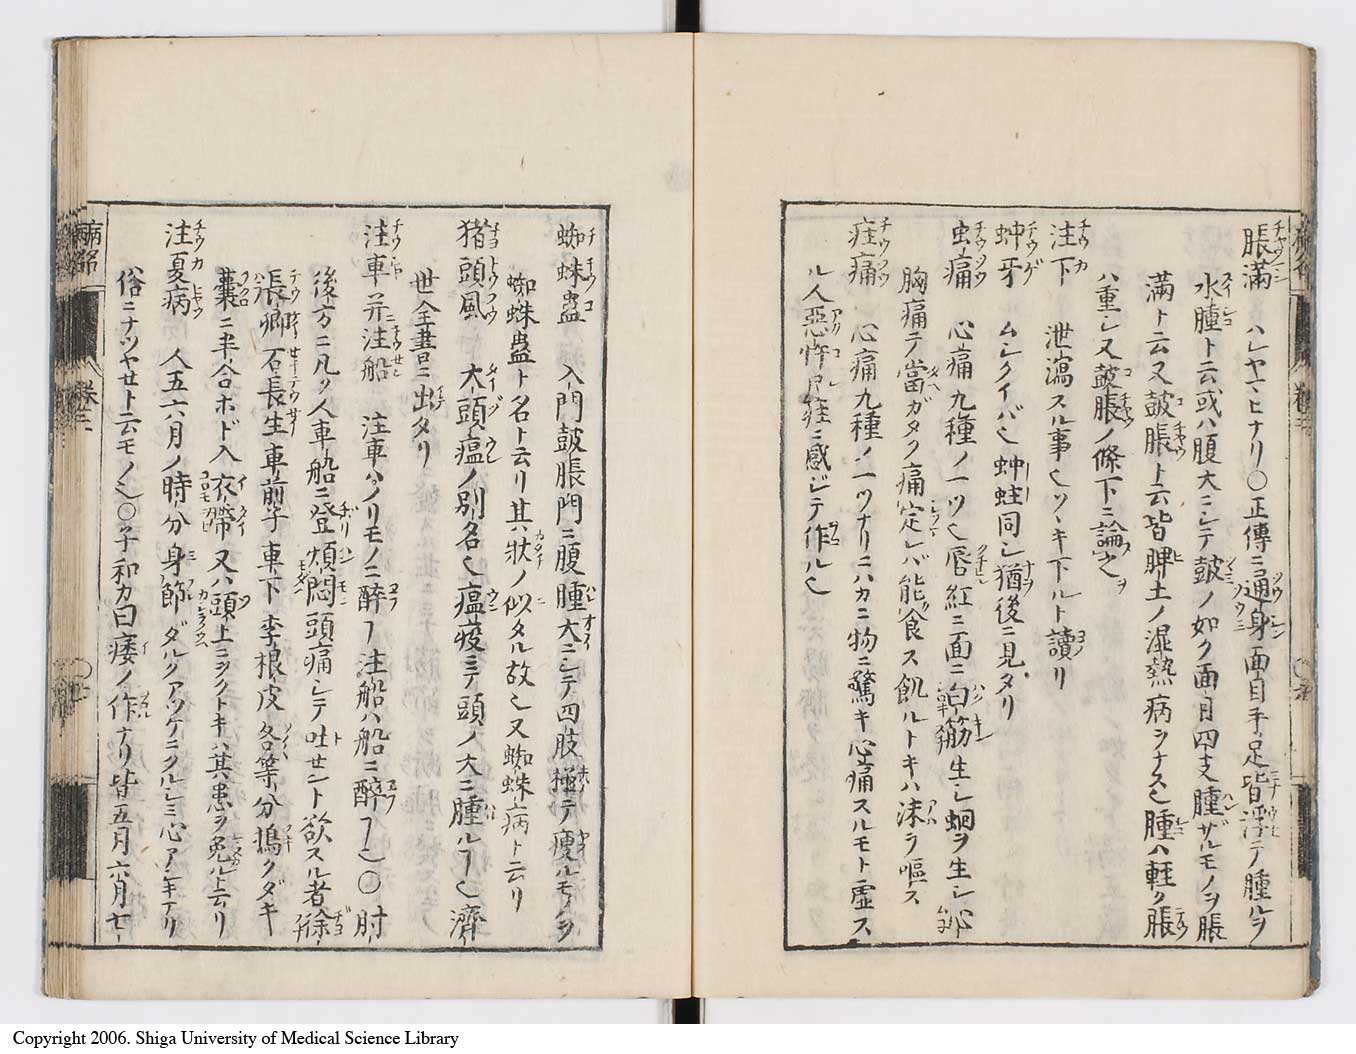 脹滿 ハレヤマヒナリ〇正傳ニ通身面目手足皆浮テ腫ルヲ
水腫ト云或ハ腹大ニシテ皷ノ如ク面目四支腫ザルモノヲ脹
滿ト云又皷脹ト云皆脾土ノ濕熱病ヲナス也腫ハ軽ク脹
ハ重シ又皷脹ノ條下ニ論之
注下 泄瀉スル事也ソヽキ下ルト讀リ
蚛牙 ムシクイバ也蚛蛀同シ猶後ニ見タリ
虫痛 心痛九種ノ一ツ也唇紅ニ面ニ白筋生シ蛔ヲ生シ心
胸痛テ當ガタク痛定レバ能食ス飢ルトキハ沫ヲ嘔ス
疰痛 心痛九種ノ一ツナリニハカニ物ニ驚キ心痛スルモト虚ス
ル人惡忤尸疰ニ感ジテ作ル也
蜘蛛蠱 入門皷脹門ニ腹腫大ニシテ四肢極テ瘦ルモノヲ
蜘蛛蠱ト名ト云リ其狀ノ似タル故也又蜘蛛病ト云リ
猪頭風 大頭瘟ノ別名也瘟疫ニテ頭ノ大ニ腫ルヿ也濟
世全書ニ出タリ
注車并注船 注車ハノリモノニ醉フ注船ハ船ニ醉フ也〇肘
後方ニ凡ソ人車船ニ登煩悶頭痛シテ吐セント欲スル者徐
長卿石長生車前子車下李根皮各等分搗クダキ
囊ニ半合ホド入衣帶又ハ頭上ニヲクトキハ其患ヲ免ル上云リ
注夏病 人五六月ノ時分身節ダルクアツケニクルシミ心アシキナリ
俗ニナツヤセト云モノ也〇子和カ曰痿ノ作ナリ皆五月六月七
病名
卷三
Copyright 2006. Shiga University of Medical Science Library